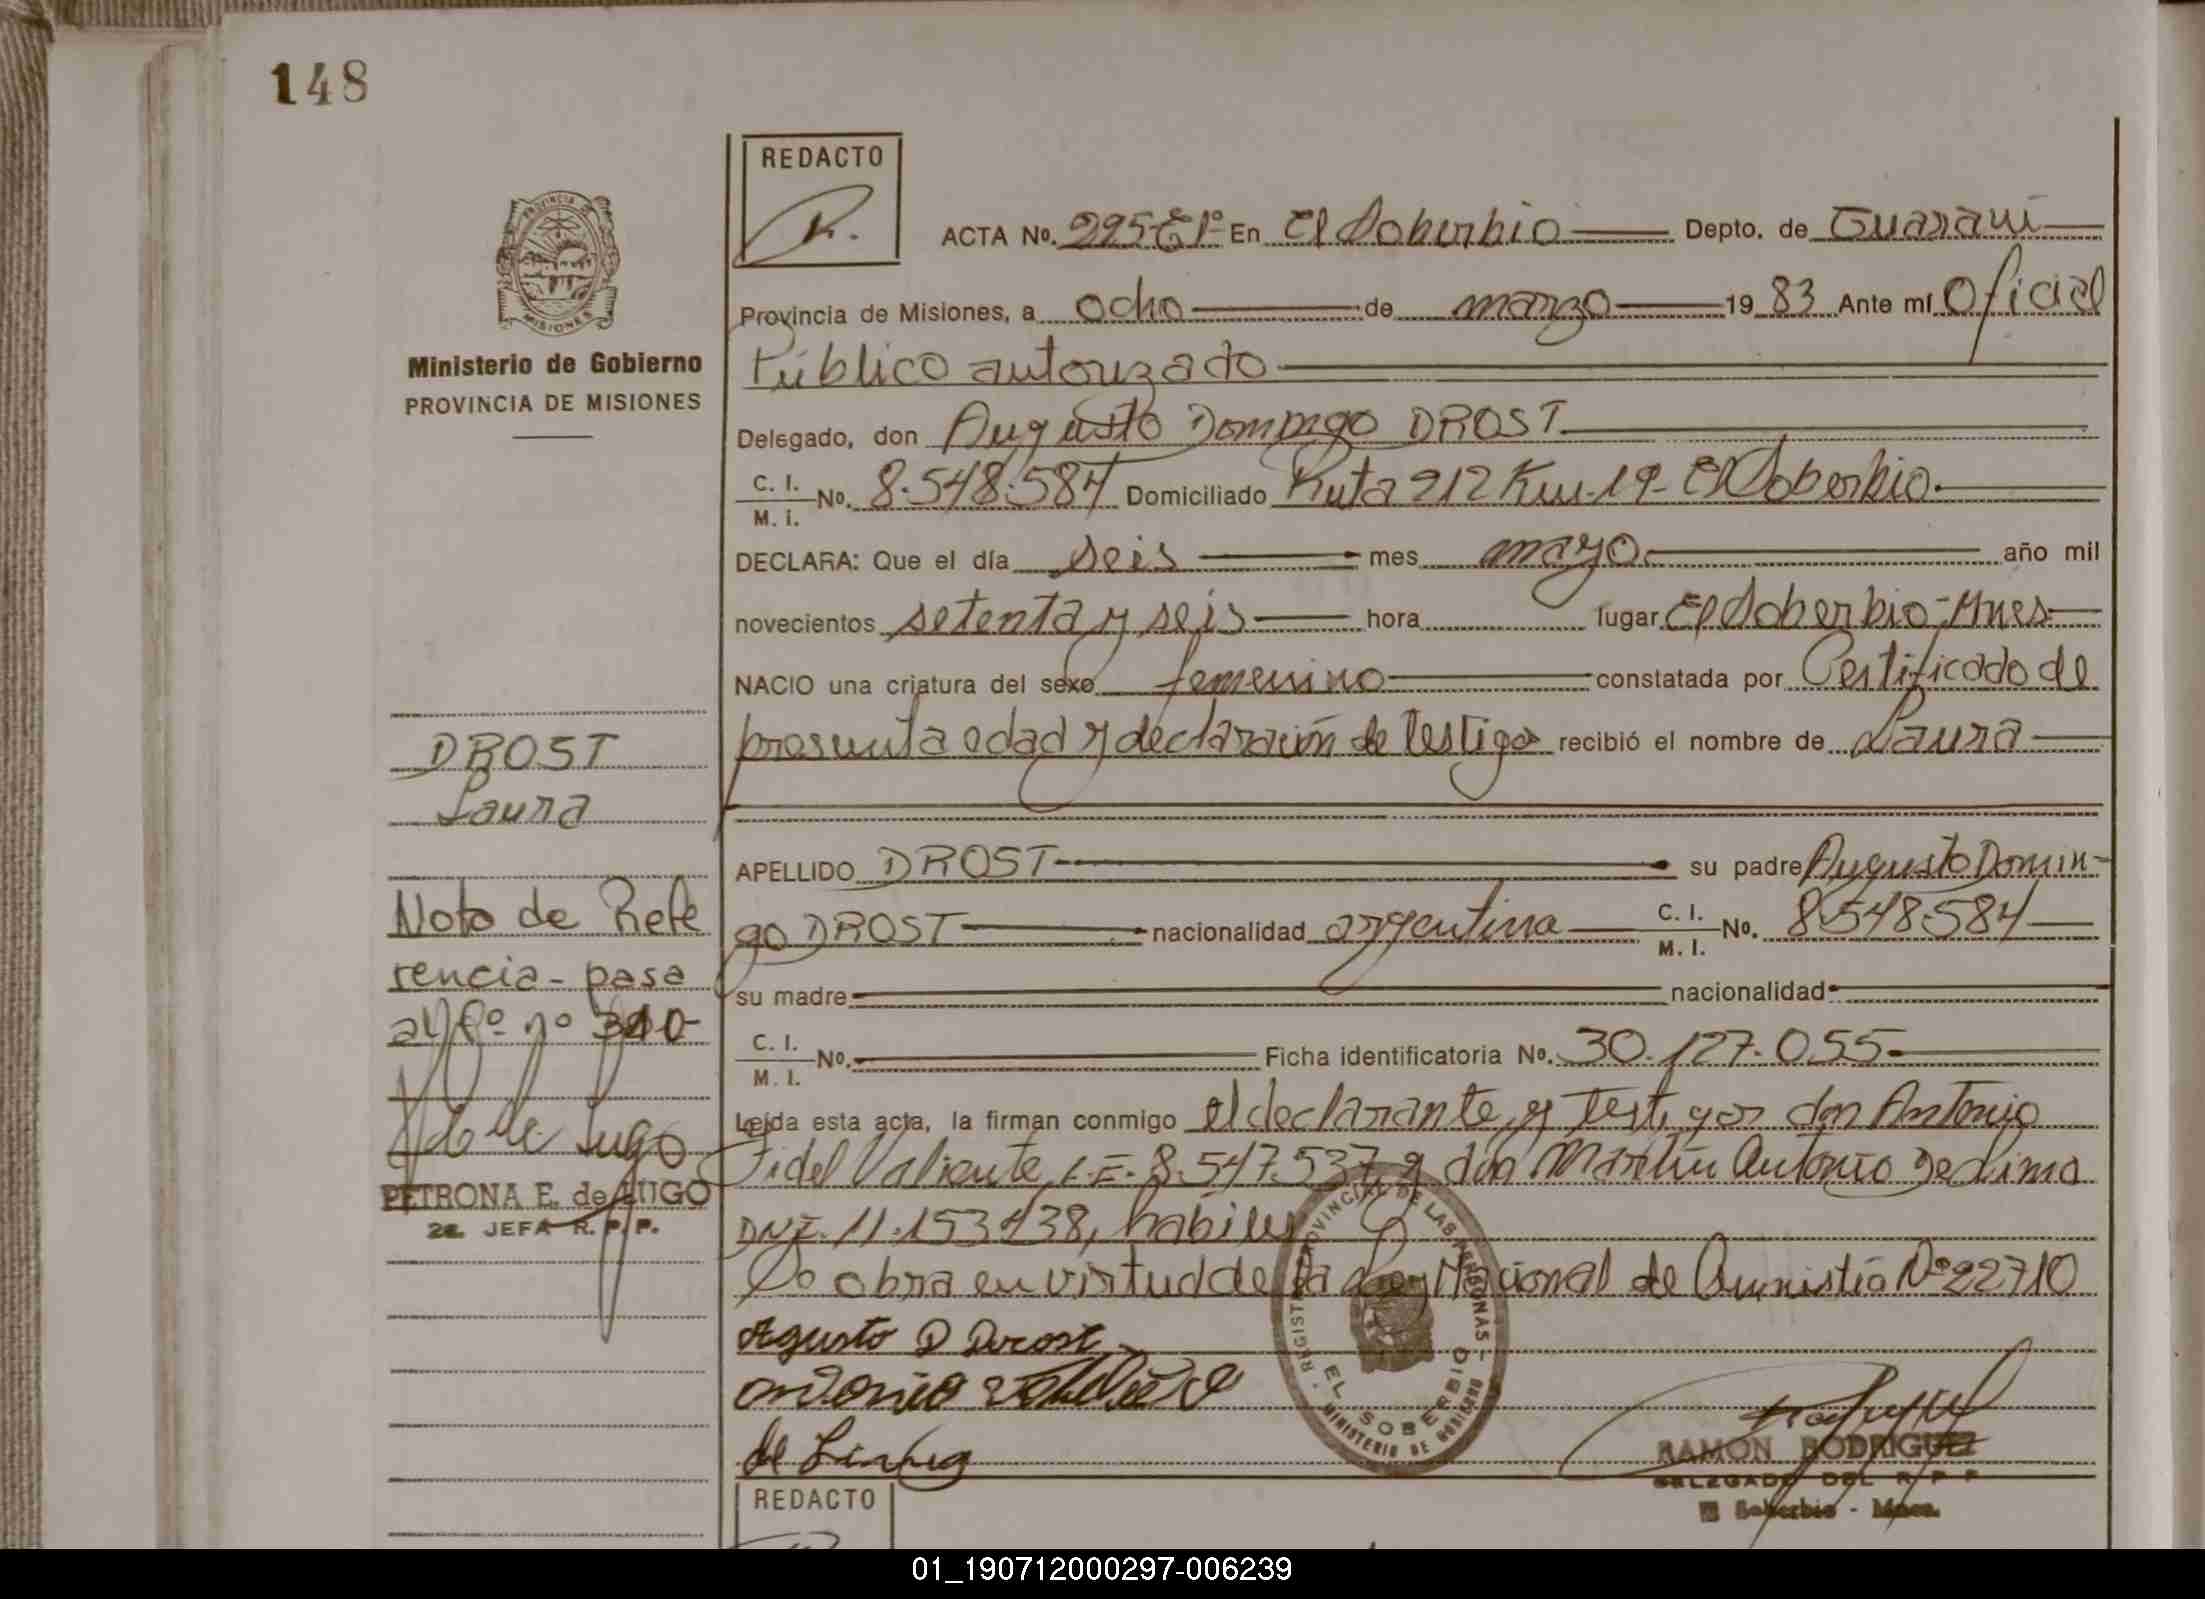 148
REDACTO
ACTA No. 295-E1º En El Soberbio Depto. de Guaraní
Provincia de Misiones, a ocho de marzo 1983 Ante mí Oficial
Público autorizado
Delegado, don Augusto Domingo DROST
C. I. / M. I. No. 8.548.584 Domiciliado Ruta 212 Km.19- El Soberbio.
DECLARA: Que el día seis mes mayo año mil
novecientos setenta y seis hora lugar El Soberbio-Mnes
NACIO una criatura del sexo femenino constatada por Certificado de
presunta edad y declaración de testigos recibió el nombre de Laura
APELLIDO DROST su padre Augusto Domin-
go DROST nacionalidad argentina C. I. / M. I. No. 8.548.584
su madre nacionalidad
C. I. / M. I. No. Ficha identificatoria No. 30.127.055-
Leída esta acta, la firman conmigo el declarante y testigos don Antonio
Fidel Valiente, L.E. 8.547.537 y don Martín Antonio De Lima
DNI. 11.153.438, habiles
Se obra en virtud de la Ley Nacional de Amnistía Nº 22710
Agusto D Drost
de Lima
REGISTRO PROVINCIAL DE LAS PERSONAS - MINISTERIO DE GOBIERNO
EL SOBERBIO
RAMON RODRIGUEZ
DELEGADO DEL R P P
El Soberbio - Mnes.
REDACTO
PROVINCIA DE
MISIONES
Ministerio de Gobierno
PROVINCIA DE MISIONES
DROST
Laura
Nota de Refe
rencia- pasa
al fº nº 310-
PETRONA E. de LUGO
2a. JEFA R. P. P.
01_190712000297-006239